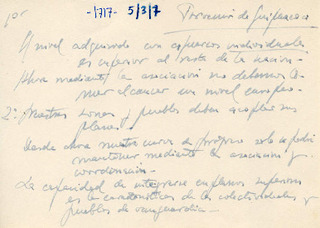 1º -1717- 5/3/7 Provincia de Guipúzcoa
El nivel adquirido con esfuerzos individuales
es inferior al resto de la nación.-
Ahora mediante la asociación no debemos
el alcanzar un nivel europeo.-
2º Nuestras zonas y pueblos deben acoplar sus
planes.-
Desde ahora nuestra de progreso solo se podrá
mantener mediante la asociación y
coordinación.-
La capacidad de integrarse en planos superiores
es la característica de las colectividades y
pueblos de vanguardia.-